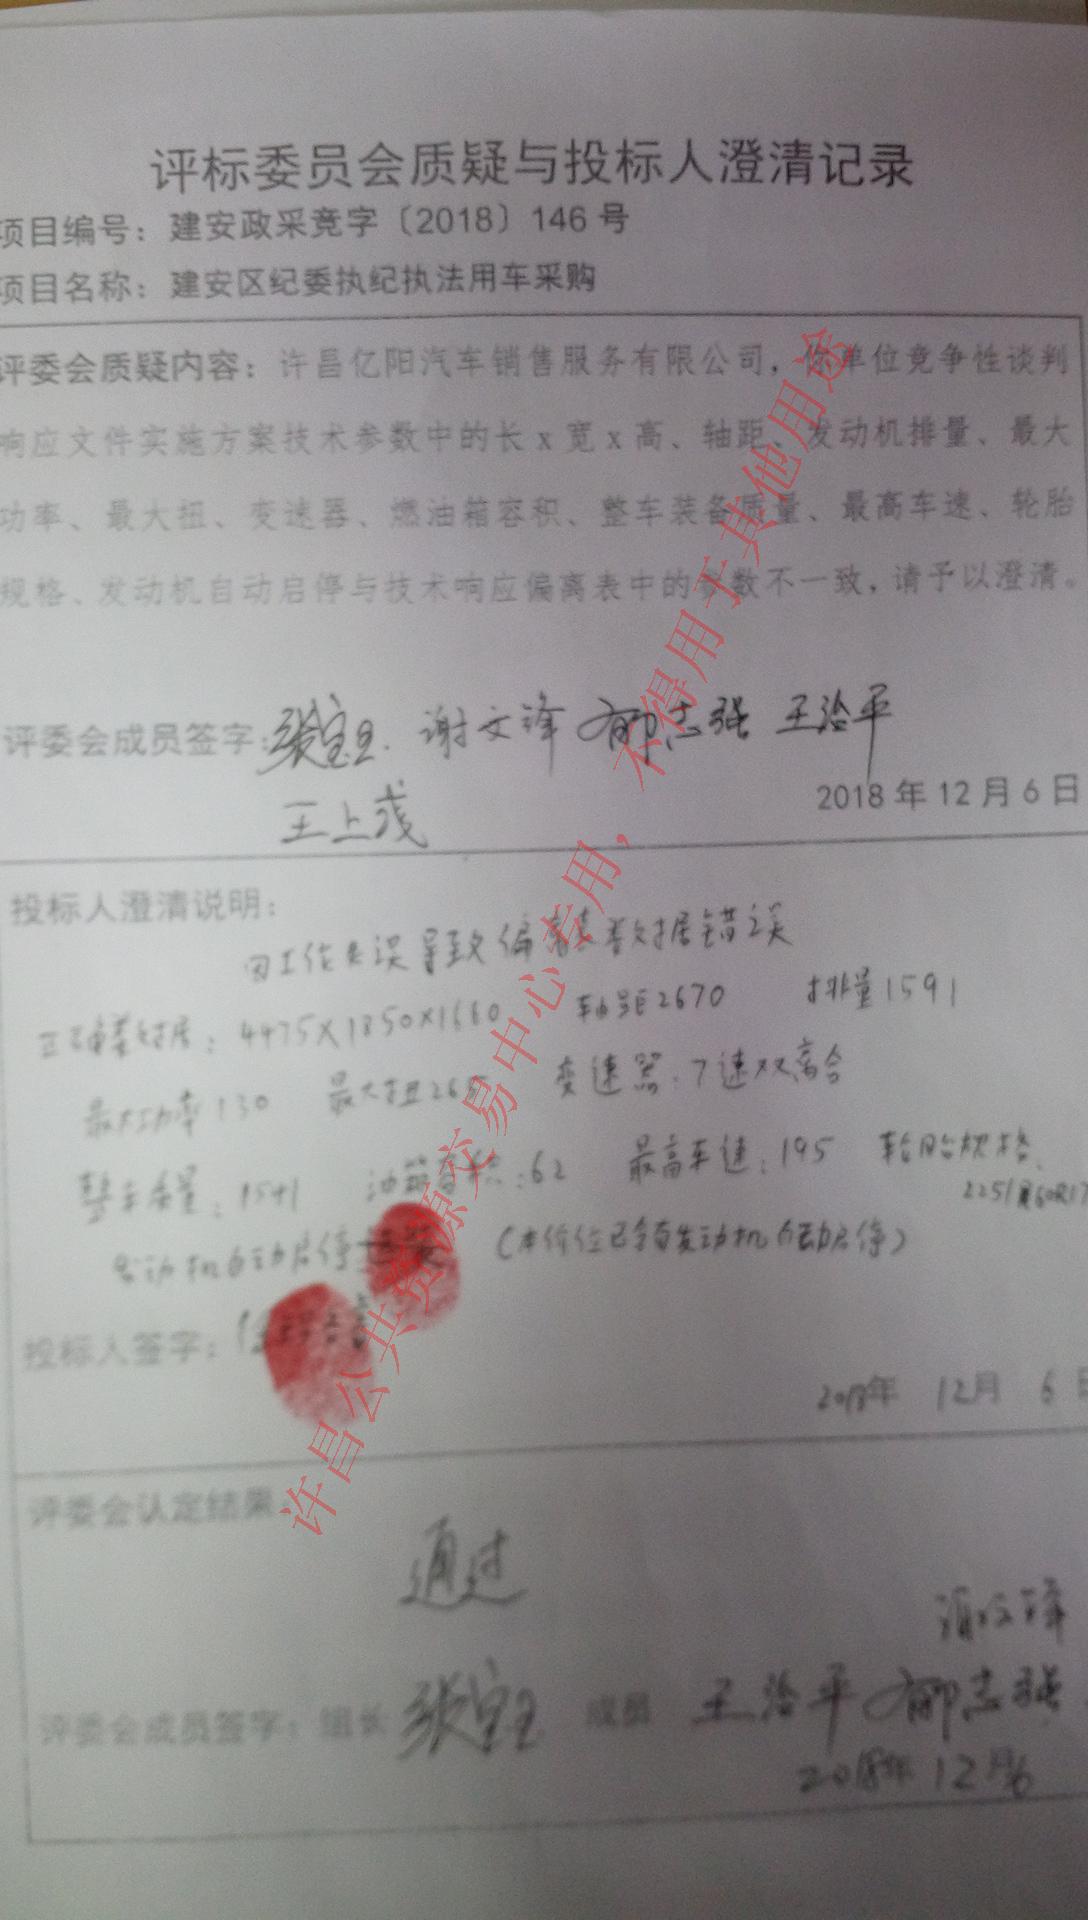 评标委员会质疑与投标人澄清记录
项目编号：建安政采竞字〔2018〕146号
项目名称：建安区纪委执纪执法用车采购
评委会质疑内容：许昌亿阳汽车销售服务有限公司，你单位竞争性谈判
响应文件实施方案技术参数中的长x宽x高、轴距、发动机排量、最大
功率、最大扭、变速器、燃油箱容积、整车装备质量、最高车速、轮胎
规格、发动机自动启停与技术响应偏离表中的参数不一致，请予以澄清。
评委会成员签字： 谢文锋 郁志强 王治平
王上
2018年12月6日
投标人澄清说明：
因工作失误导致偏离表数据错误
正确数据：4475×1850×1660 轴距2670 排量1591
最大功率130 最大扭265 变速器：7速双离合
整车质量：1541 油箱容积：62 最高车速：195 轮胎规格
225/60R17
发动机自动启停 （本价位已含有发动机自动启停）
投标人签字：
2018年 12月 6日
评委会认定结果：
通过
谢文锋
评委会成员签字：组长 成员 王治平 郁志强
2018年12月6
许昌公共资源交易中心专用，不得用于其他用途